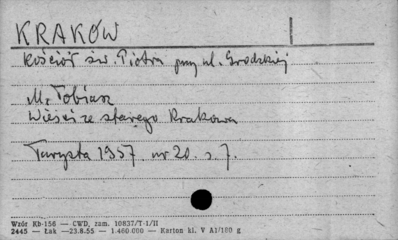 KRAKÓW
Kościół św. Piotra przy ul. Grodzkiej
M. Tobiasz
Wieści ze starego Krakowa
Turysta 1957. nr 20. s. 7.
Wzór Kb-156 — CWD, zam. 10837/T-1/II
2445 — Łak —23.8.55 — 1.460.000 — Karton kl. V A1/100 g